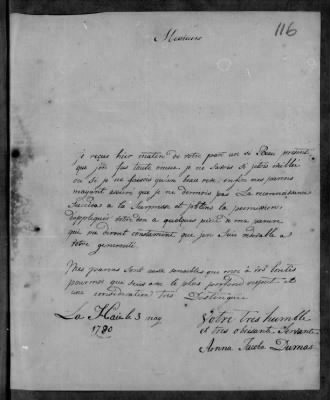 116
Messieurs
j reçus hier matin de votre part un si Beau present
que j'en fus toute emue. je ne savois si jetois eveillée
ou si je ne faisois qu'un beau reve. enfin mes parens
mayant assuré que je ne dormois pas La reconnaissance
Succeda a la Surprise et jobtins la permission
dappliquer votre don a quelques pieces de ma parure
qui me diront constament que jen Suis redevable a
votre generosité
Mes parens sont aussi sensibles que moi a vos bontés
pour moi que suis avec le plus profond respect et
une consideration tres Distinguée
La Haie le 3 may
1780
Votre tres humble
et tres obeisante Servante
Anna Dumas